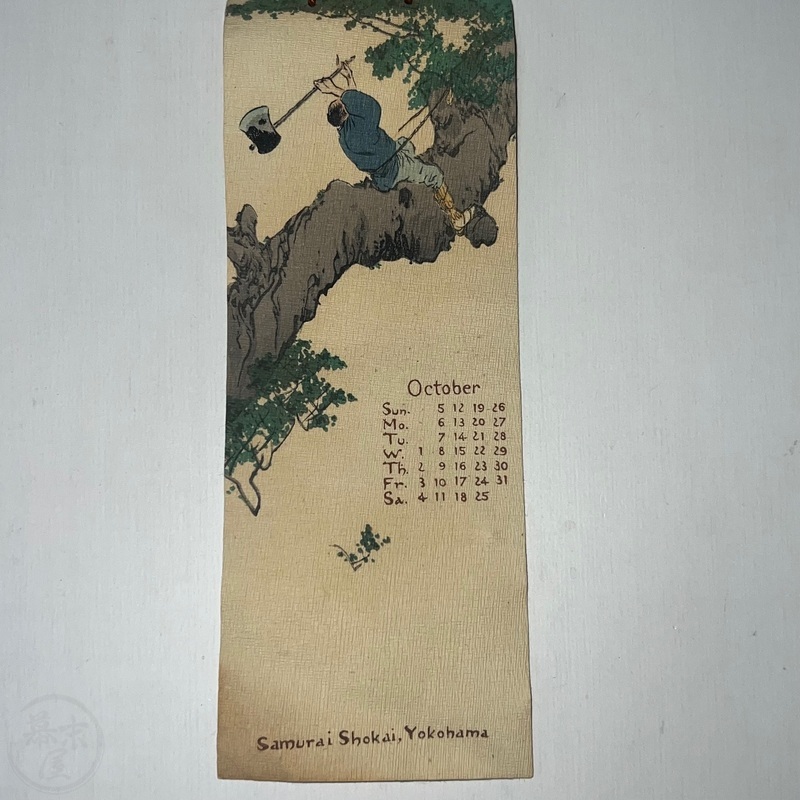 October
Sun. 5 12 19 26
Mo. 6 13 20 27
Tu. 7 14 21 28
W. 1 8 15 22 29
Th. 2 9 16 23 30
Fr. 3 10 17 24 31
Sa. 4 11 18 25
Samurai Shokai, Yokohama
幕末屋